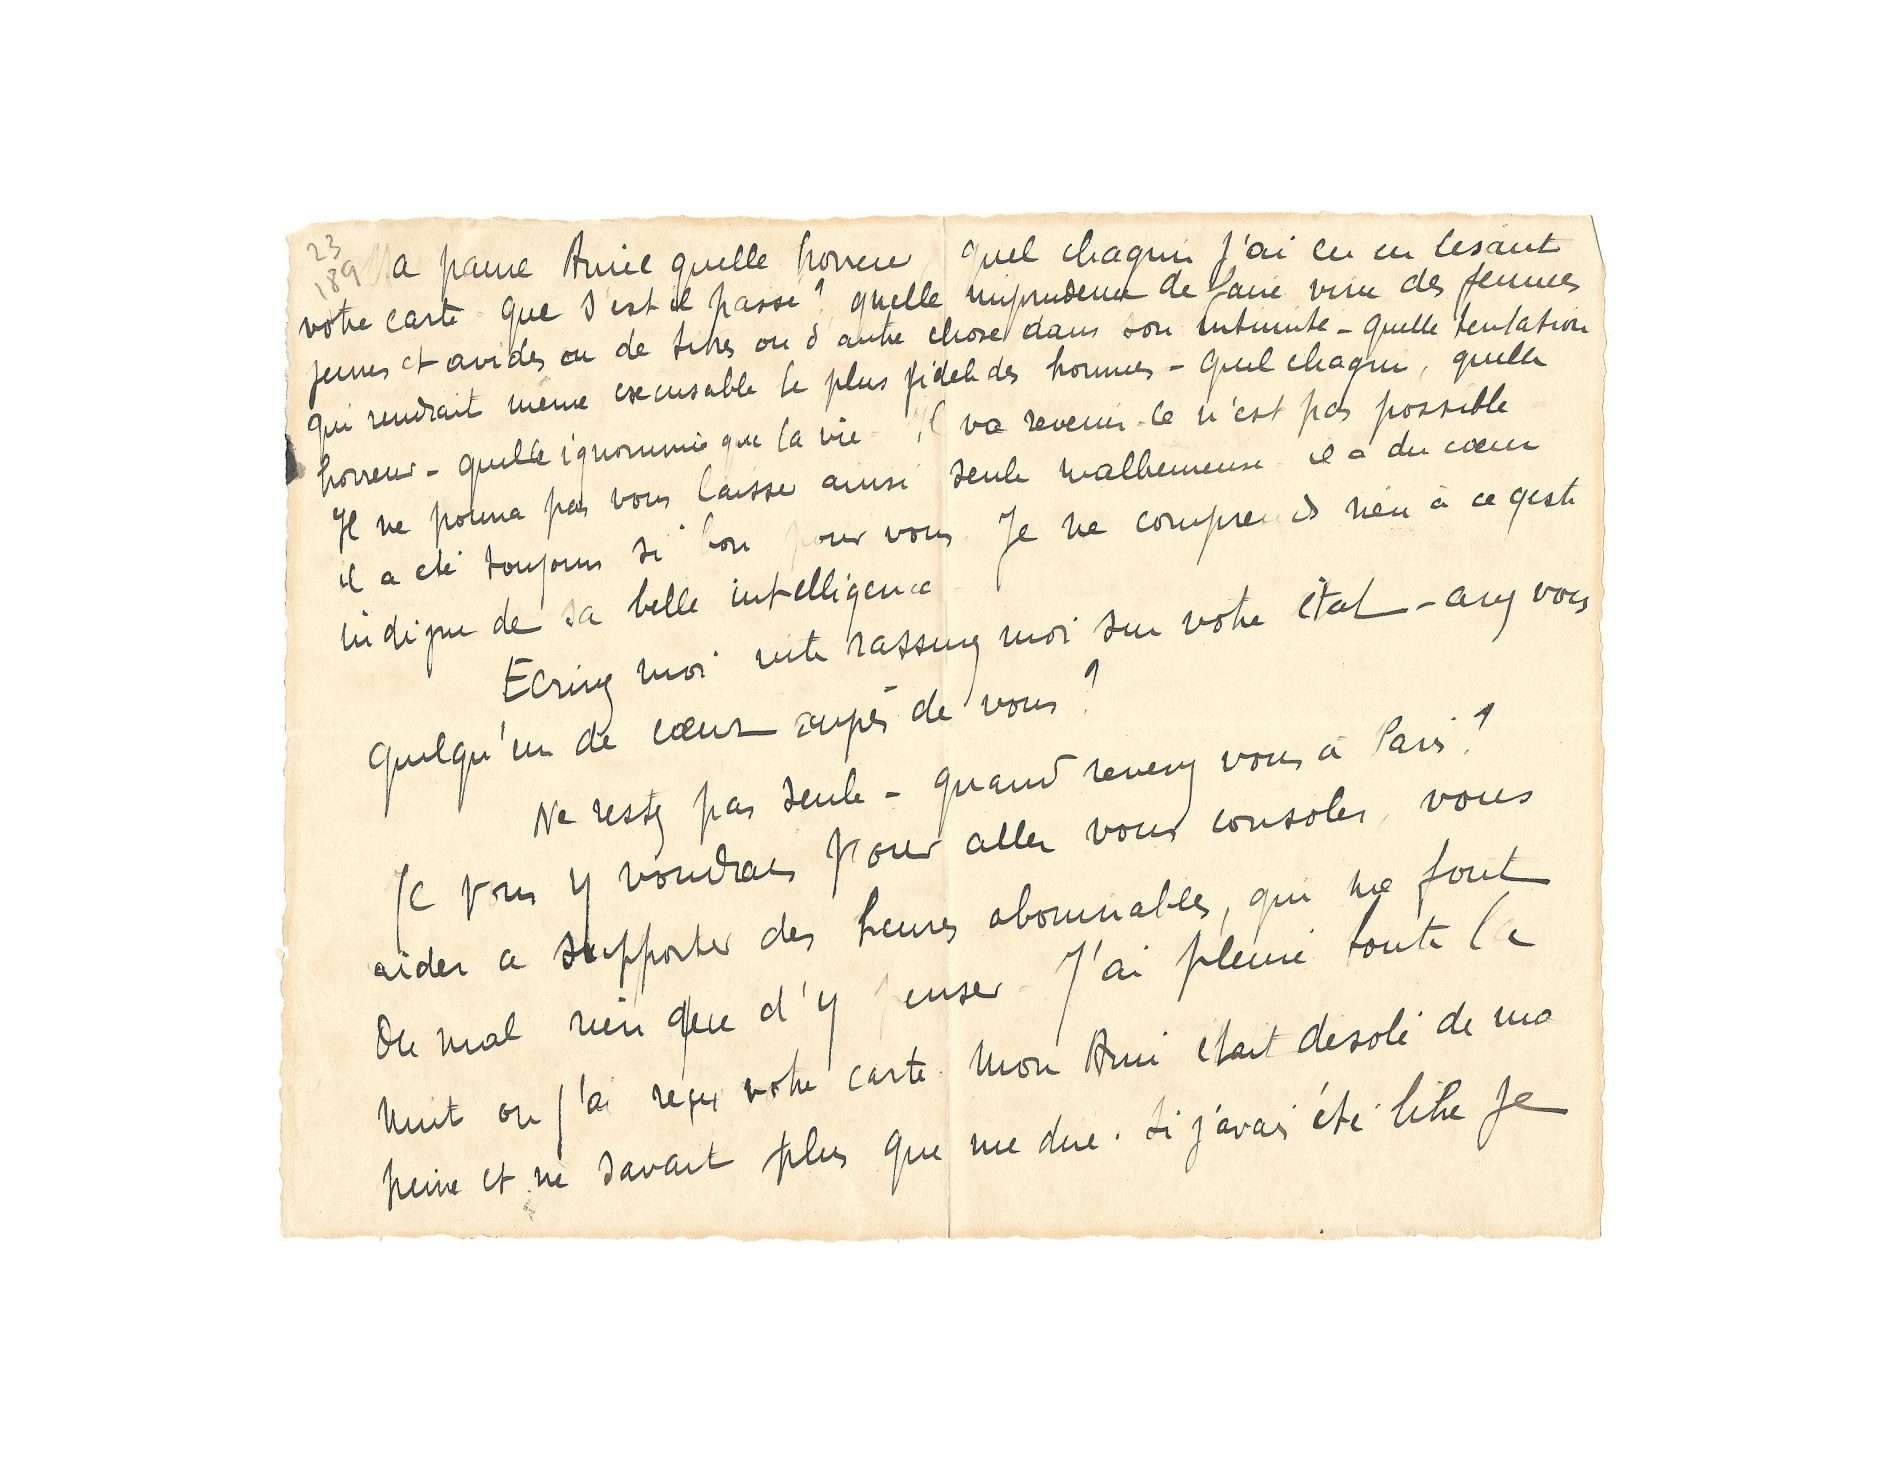 23
189
Ma pauvre Amie quelle horreur, quel chagrin j'ai eu en lisant
votre carte. Que s'est il passé? quelle imprudence de faire vivre des femmes
jeunes et avides ou de titres ou d'autre chose dans son intimité - quelle tentation
qui rendrait même excusable le plus fidele des hommes - quel chagrin, quelle
horreur - quelle ignominie que la vie. il va revenir. ce n'est pas possible
Il ne pourra pas vous laisser ainsi seule malheureuse. il a du cœur
il a été toujours si bon pour vous. Je ne comprends rien à ce geste
indigne de sa belle intelligence.
Ecrivez moi vite rassurez moi sur votre état - avez vous
quelqu'un de cœur auprès de vous?
Ne restez pas seule - quand revenez vous à Paris?
Je vous y voudrais pour aller vous consoler, vous
aider a supporter des heures abominables, qui me font
du mal rien que d'y penser. J'ai pleuré toute la
nuit ou j'ai reçu votre carte. Mon Ami était desolé de ma
peine et ne savait plus que me dire. Si j'avais été libre Je